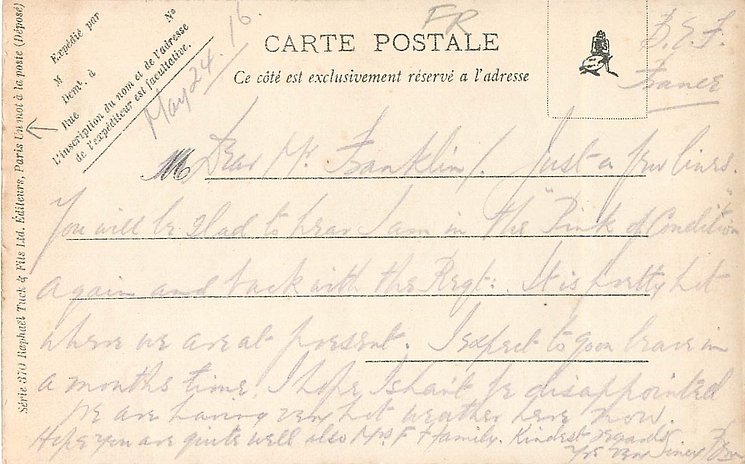 Série 370 Raphaël Tuck & Fils Ltd. Éditeurs, Paris Un mot à la poste (Déposé)
Expédié par
M
Demt. à
Rue
N°
L'inscription du nom et de l'adresse
de l'expéditeur est facultative.
May 24/16.
FR
CARTE POSTALE
Ce côté est exclusivement réservé a l'adresse
B.E.F.
France
M
Dear Mr. Franklin/. Just a few lines.
You will be glad to hear I am in the "Pink of Condition"
again and back with the Regt: It is pretty hot
where we are at present. I expect to go on leave in
a months time, I hope I shant be disappointed
We are having very hot weather here now.
Hope you are quite well also Mrs F & family. Kindest regards
Yrs very